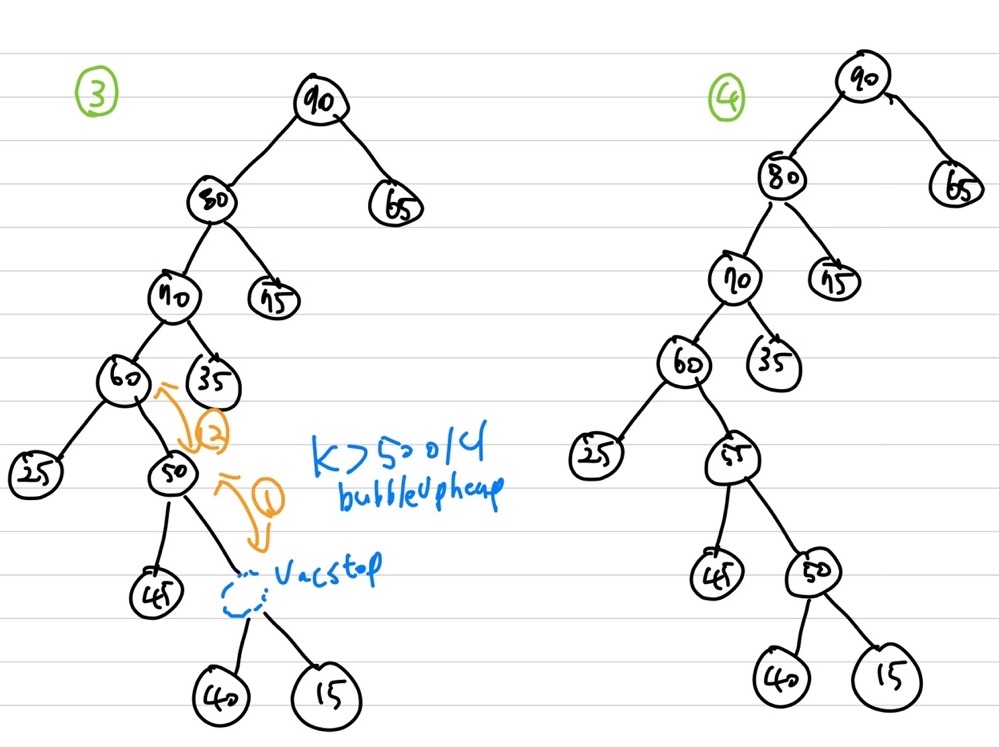 3
90
80
65
70
75
60
35
2
25
50
1
K>50이니
bubbleUpheap
vacstop
45
40
15
4
90
80
65
70
75
60
35
25
55
45
50
40
15